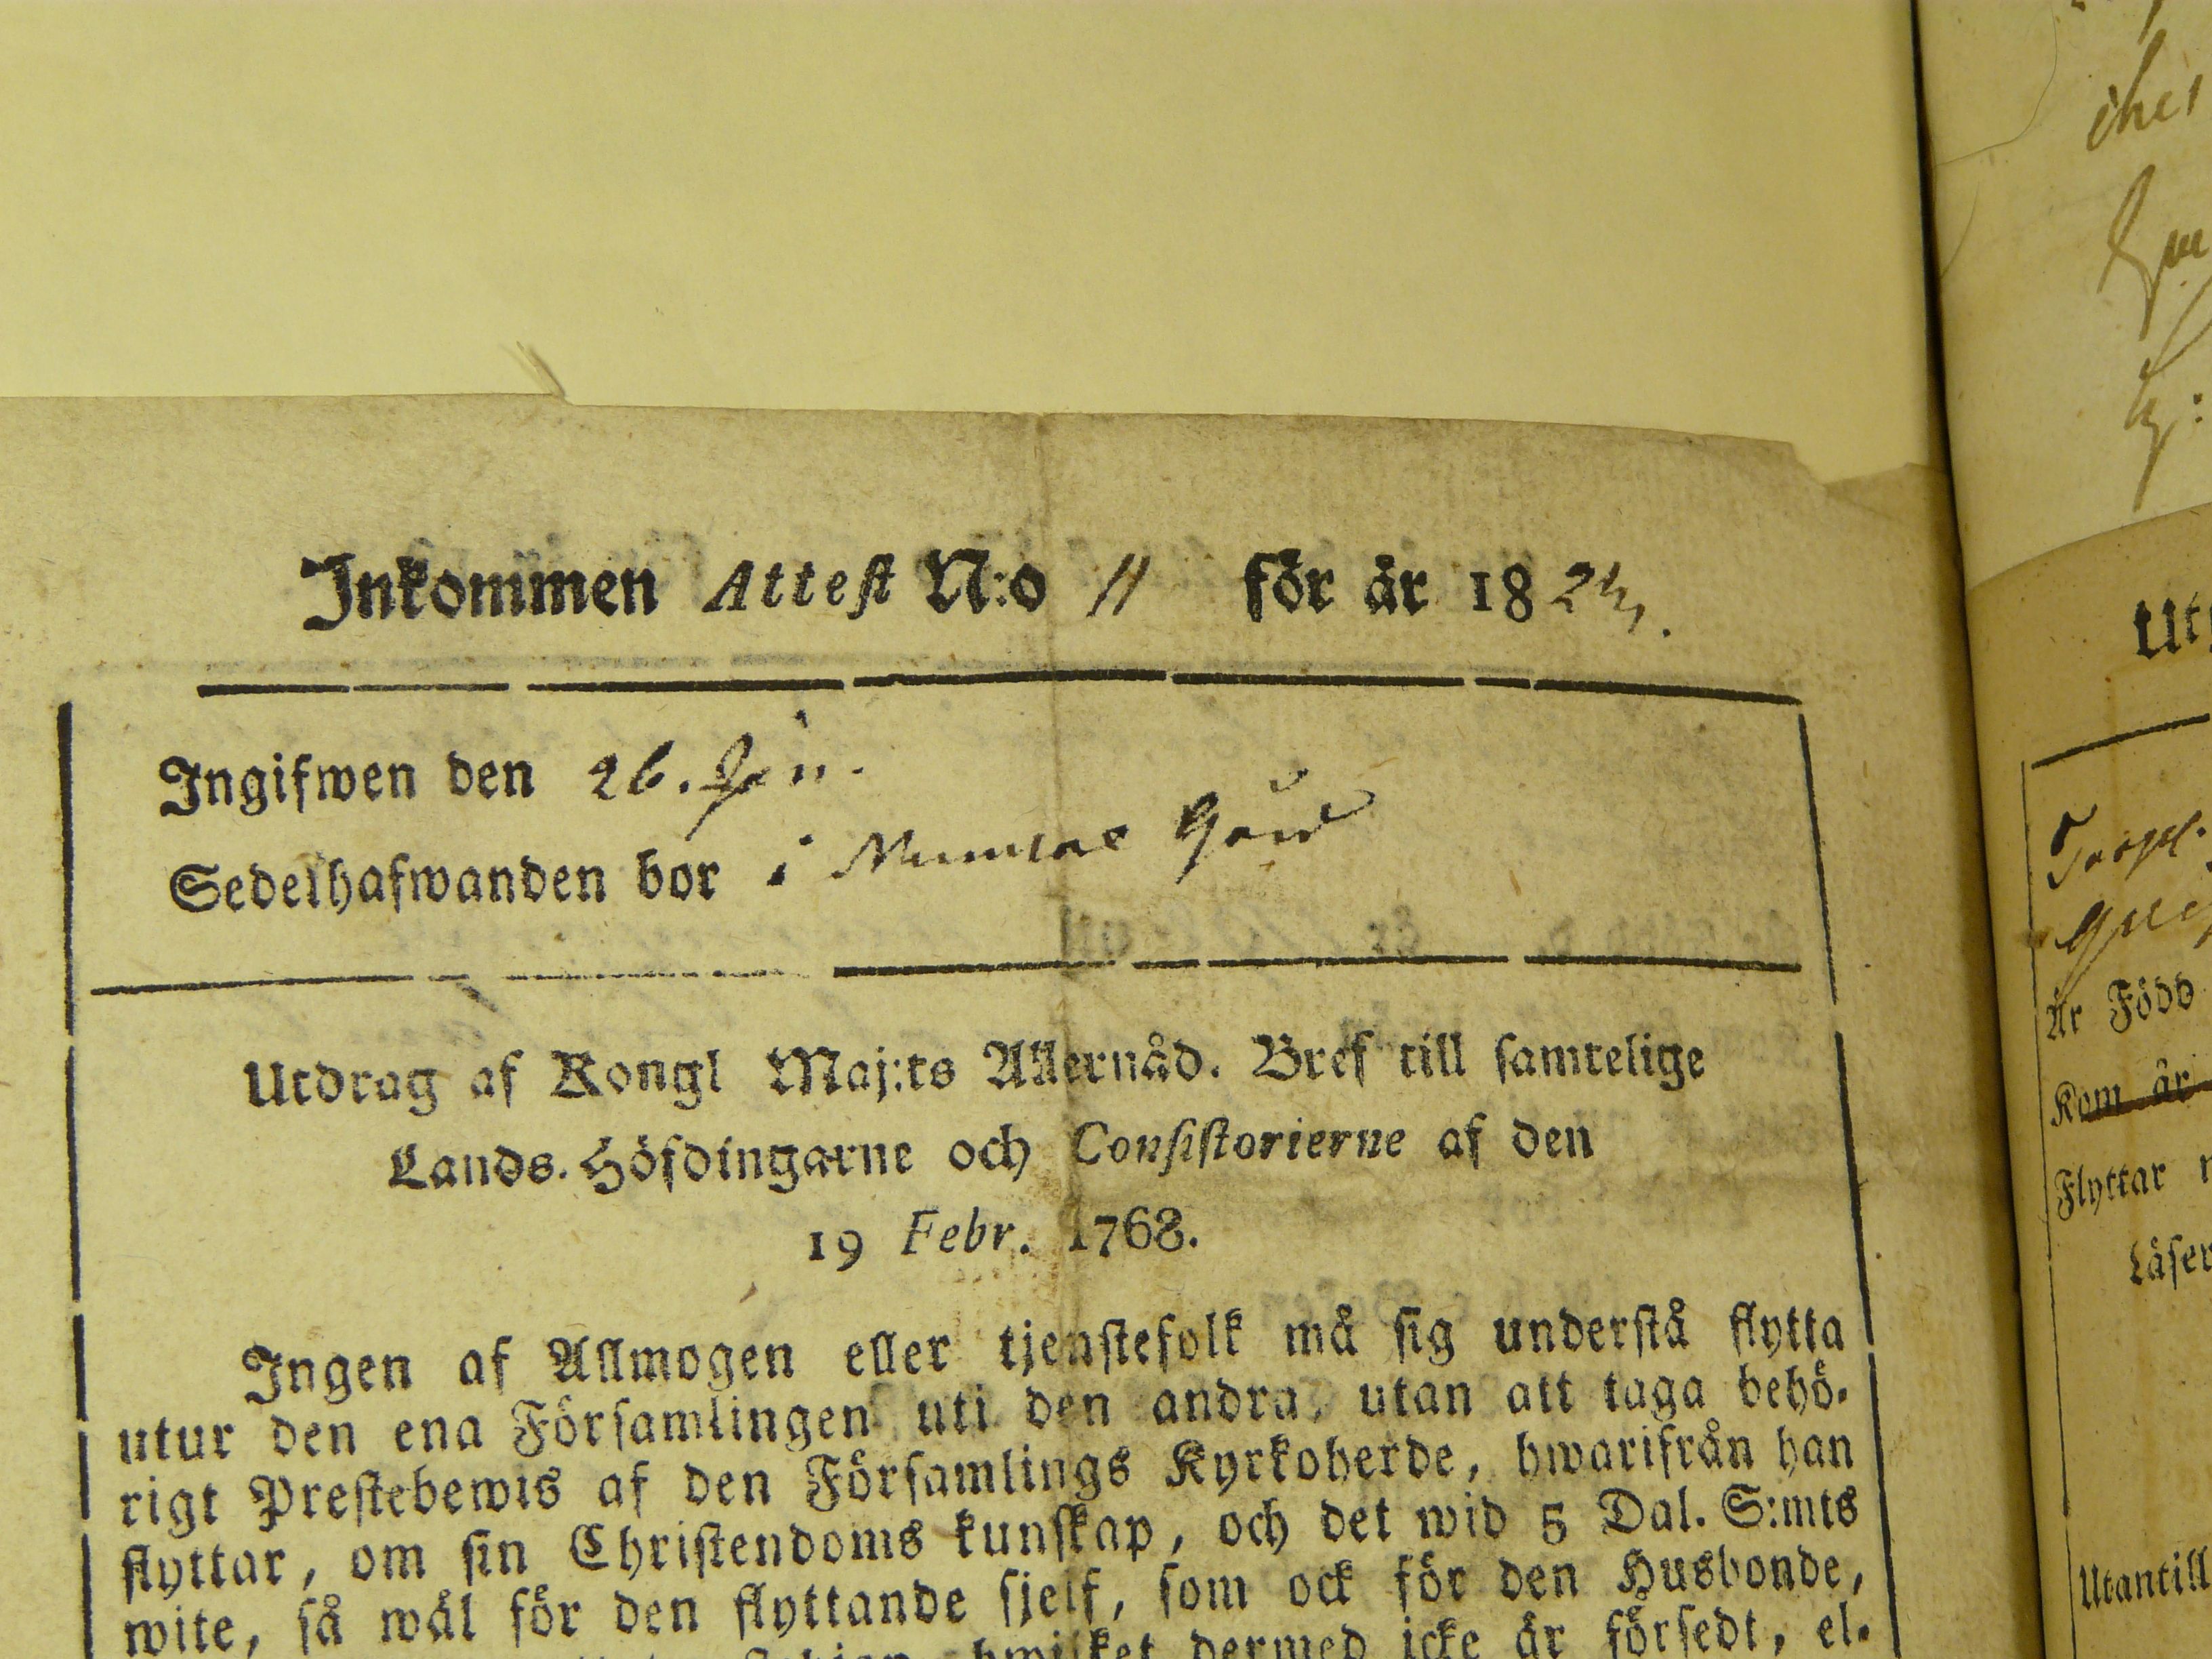 Inkommen Attest N:o 11 för år 1824.
Ingifwen den 26. Jun.
Sedelhafwanden bor i Gård
Utdrag af Kongl Maj:ts Allernåd. Bref till samtelige
Lands-Höfdingarne och Consistorierne af den
19 Febr. 1768.
Ingen af Allmogen eller tjenstefolk må sig understå flytta
utur den ena Församlingen uti den andra, utan att taga behö-
rigt Prestebewis af den Församlings Kyrkoherde, hwarifrån han
flyttar, om sin Christendoms kunskap, och det wid 5 Dal. S:mts
wite, så wäl för den flyttande sjelf, som ock för den Husbonde,
hwilket dermed icke är försedt, el-
Är Född
Kom år
Flyttar
Läser
Utantill